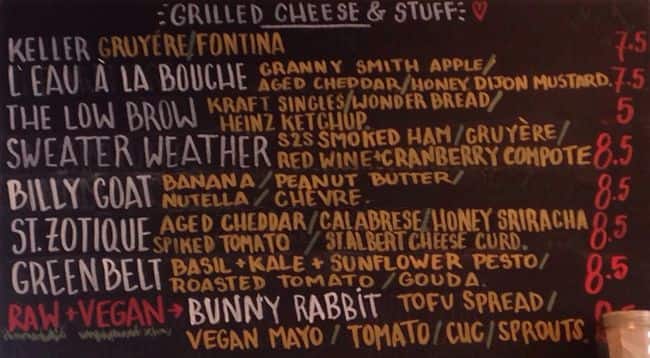 GRILLED CHEESE & STUFF: ♥
KELLER GRUYÉRE/FONTINA 7.5
L'EAU À LA BOUCHE GRANNY SMITH APPLE/
AGED CHEDDAR/HONEY DIJON MUSTARD. 7.5
THE LOW BROW KRAFT SINGLES/WONDER BREAD/ 5
HEINZ KETCHUP.
SWEATER WEATHER S2S SMOKED HAM/GRUYÈRE/
RED WINE+CRANBERRY COMPOTE 8.5
BILLY GOAT BANANA/PEANUT BUTTER/
NUTELLA/CHÈVRE. 8.5
ST. ZOTIQUE AGED CHEDDAR/CALABRESE/HONEY SRIRACHA
SPIKED TOMATO / ST.ALBERT CHEESE CURD. 8.5
GREENBELT BASIL+KALE+SUNFLOWER PESTO/
ROASTED TOMATO/GOUDA. 8.5
RAW+VEGAN→ BUNNY RABBIT TOFU SPREAD/
VEGAN MAYO/TOMATO/CUC/SPROUTS